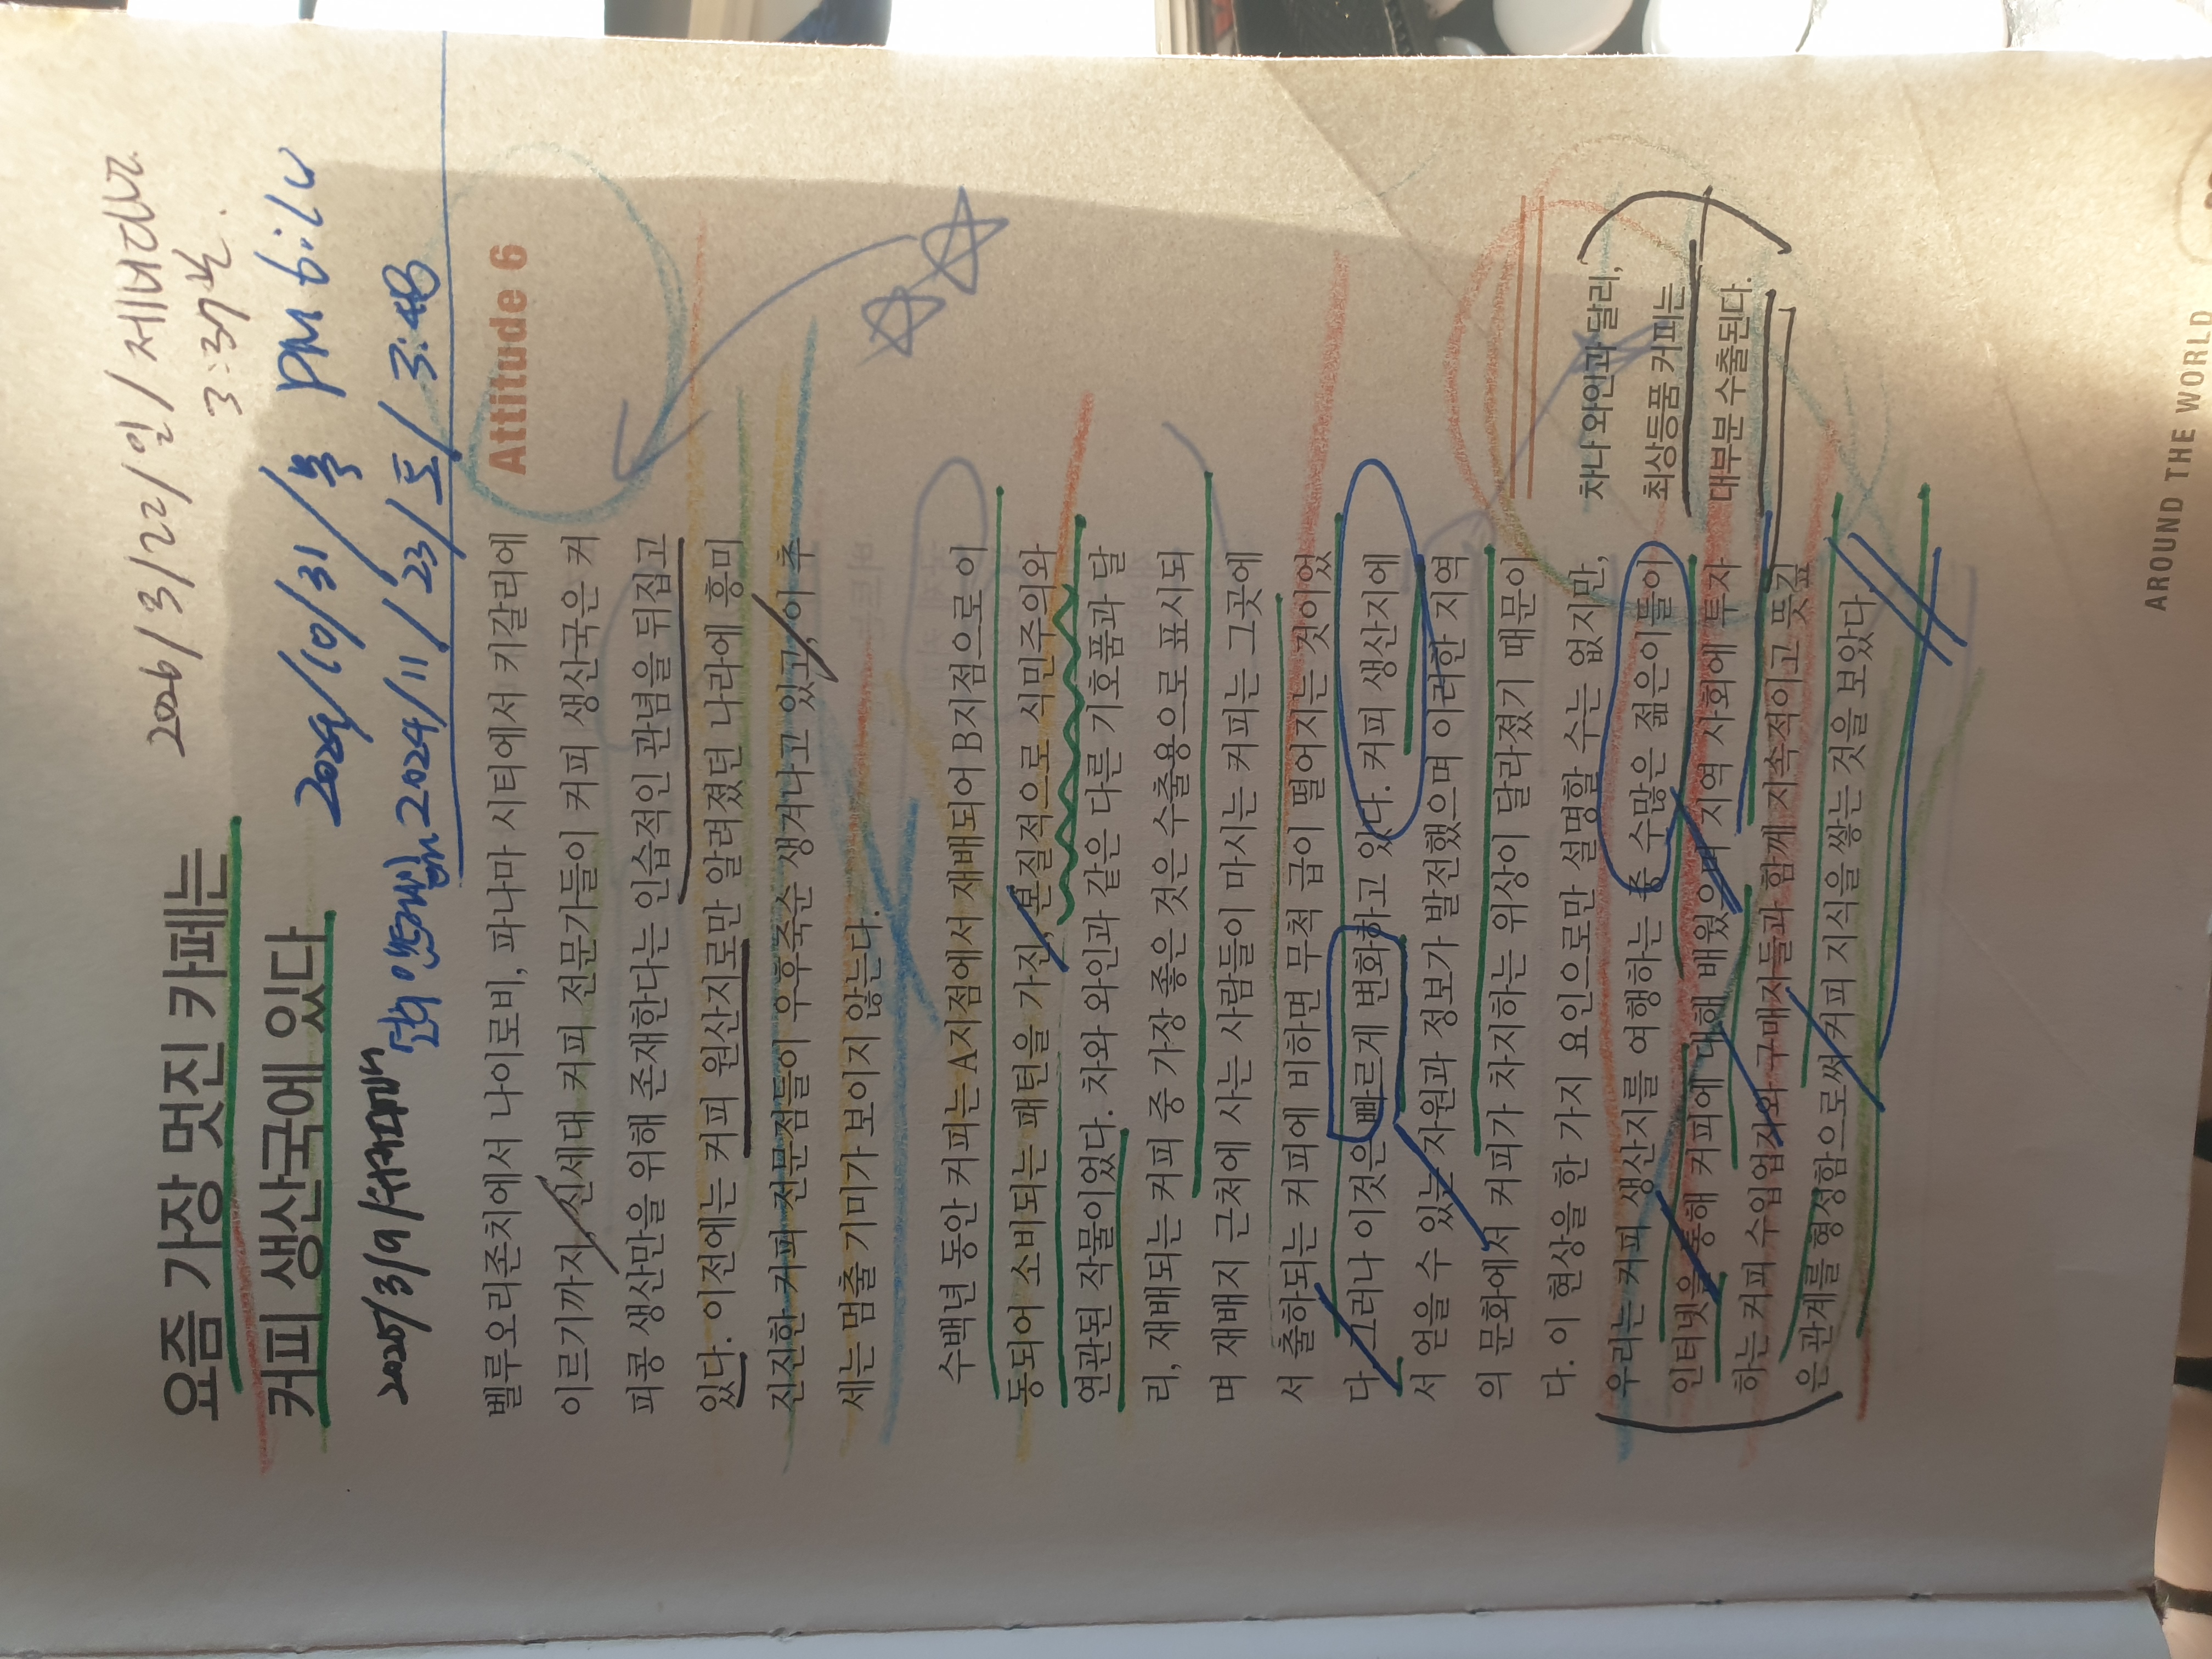 요즘 가장 멋진 카페는
커피 생산국에 있다
2026/3/22/일/제네다보
3:37분.
2024/10/31/목 PM 6:20
2025/3/9/
2024/11/23/토/3:43
Attitude 6
벨루오리존치에서 나이로비, 파나마 시티에서 키갈리에
이르기까지, 신세대 커피 전문가들이 커피 생산국은 커
피콩 생산만을 위해 존재한다는 인습적인 관념을 뒤집고
있다. 이전에는 커피 원산지로만 알려졌던 나라에 흥미
진진한 커피 전문점들이 우후죽순 생겨나고 있고, 이 추
세는 멈출 기미가 보이지 않는다.
수백년 동안 커피는 A지점에서 재배되어 B지점으로 이
동되어 소비되는 패턴을 가진, 본질적으로 식민주의와
연관된 작물이었다. 차와 와인과 같은 다른 기호품과 달
리, 재배되는 커피 중 가장 좋은 것은 수출용으로 표시되
며 재배지 근처에 사는 사람들이 마시는 커피는 그곳에
서 출하되는 커피에 비하면 무척 급이 떨어지는 것이었
다. 그러나 이것은 빠르게 변화하고 있다. 커피 생산지에
서 얻을 수 있는 자원과 정보가 발전했으며 이러한 지역
의 문화에서 커피가 차지하는 위상이 달라졌기 때문이
다. 이 현상을 한 가지 요인으로만 설명할 수는 없지만,
우리는 커피 생산지를 여행하는 중 수많은 젊은이들이
인터넷을 통해 커피에 대해 배웠으며 지역 사회에 투자
하는 커피 수입업자와 구매자들과 함께 지속적이고 뜻깊
은 관계를 형성함으로써 커피 지식을 쌓는 것을 보았다.
차나 와인과 달리,
최상등품 커피는
대부분 수출된다.
AROUND THE WORLD